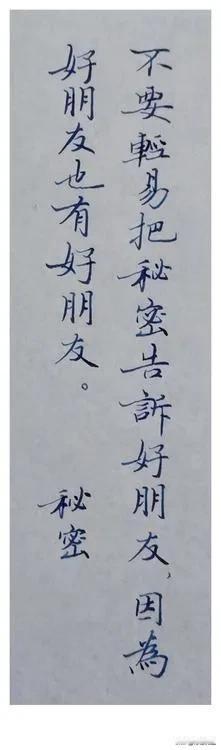 不要輕易把秘密告訴好朋友,因為
好朋友也有好朋友。
秘密